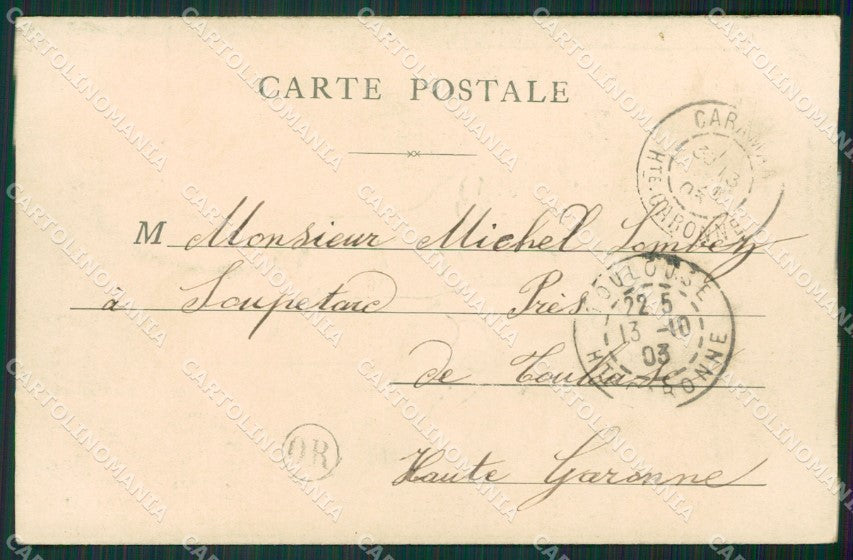 CARTE POSTALE
CARAMAN
13
03
HTE. GARONNE
M Monsieur Michel Lombez
à Soupetard Près
de Toulouse
Haute Garonne
TOULOUSE
22 5
13 -10
03
HTE GARONNE
OR
CARTOLINOMANIA